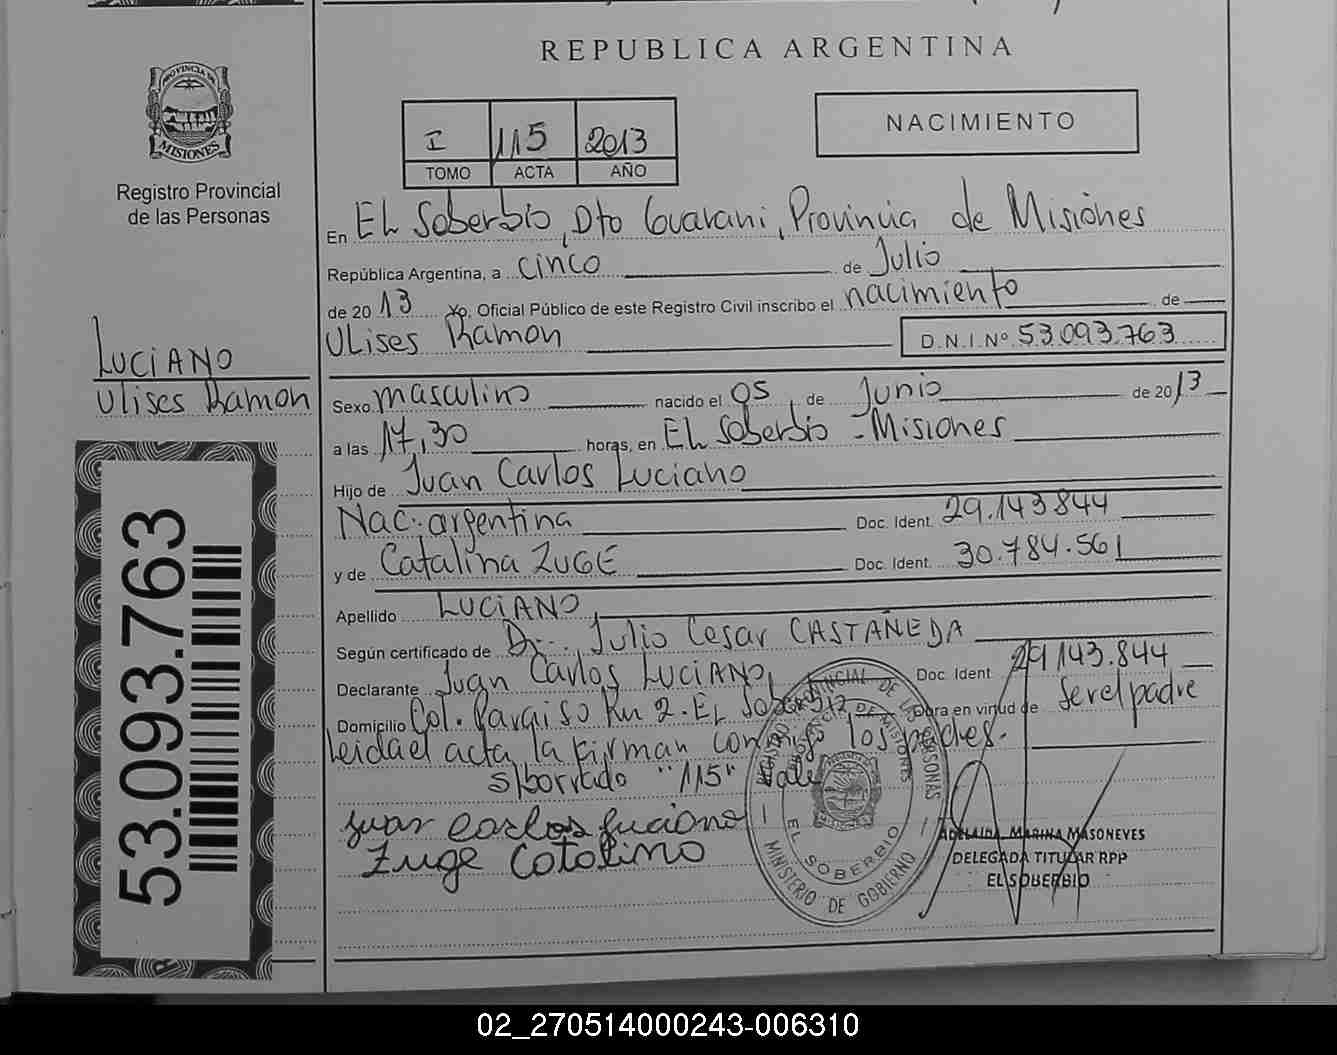 REPUBLICA ARGENTINA
PROVINCIA DE
MISIONES
Registro Provincial
de las Personas
I 115 2013
TOMO ACTA AÑO
NACIMIENTO
En El Soberbio, Dto Guarani, Provincia de Misiones
República Argentina, a cinco de Julio
de 2013 Yo, Oficial Público de este Registro Civil inscribo el nacimiento de
Ulises Ramon D.N.I.Nº 53.093.763
LUCIANO
Ulises Ramon
Sexo masculino nacido el 05 de Junio de 2013
a las 17,30 horas, en El Soberbio - Misiones
Hijo de Juan Carlos Luciano
Nac. argentina Doc. Ident. 29.143.844
y de Catalina ZUGE Doc. Ident. 30.784.561
Apellido LUCIANO
Según certificado de Dr. Julio Cesar CASTAÑEDA
Declarante Juan Carlos LUCIANO Doc. Ident 29143.844
Domicilio Col. Paraiso Km 2. El Obra en virtud de ser el padre
Leida el acta, la firman conmigo los padres.
s/borrado "115" Vale
Juan Carlos Luciano
Zuge Catalina
53.093.763
REGISTRO PROVINCIAL DE LAS PERSONAS
PROVINCIA DE MISIONES
EL SOBERBIO
MINISTERIO DE GOBIERNO
ADELAIDA MARINA MASONEVES
DELEGADA TITULAR RPP
EL SOBERBIO
02_270514000243-006310